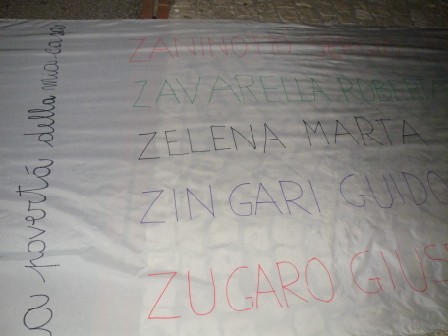 a povertá della mia casa
ZANINOTTO
ZAVARELLA ROBERT
ZELENA MARTA
ZINGARI GUIDO
ZUGARO GIUS